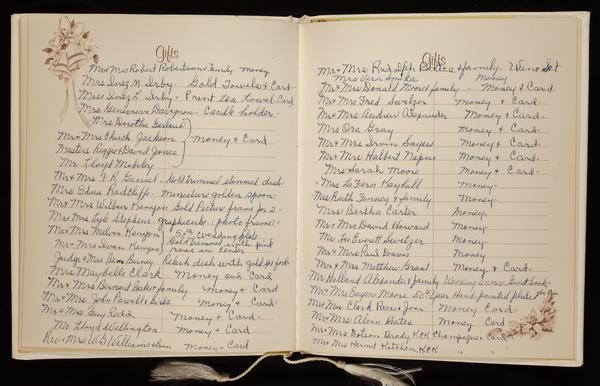 Gifts
Mr + Mrs Robert Robertson + family money
Mrs Inez M. Irby - Gold Towels + Card
Miss Inez L. Irby - Print tea towel Card
Mrs Genevieve - Candle holder
Mrs Dorothy
Mr + Mrs Chuck Jackson Money + Card
Masters Reggie + David Jones
Mr. Floyd Mobeley
Mr + Mrs F. R. Gold trimmed stemmed dish
Mrs Edna Radcliffe. Miniature golden spoon
Mr + Mrs Wilbur Kenyon Gold Picture frame for 2
Mr + Mrs Lyle Stephens. (photo frame)
Mr + Mrs Milvon Kenyon 50th Wedding plate
Mr - Mrs Ivan Kenyon Gold trimmed with pink rose in center
Judge + Mrs Ben Berney Relish dish with gold fork
Mrs Maybelle Clark Money and Card
Mr + Mrs Bernard Bates family money + Card
Mr + Mrs John Powell + Girls Money + Card
Mr + Mrs Guy Redd Money + Card
Mr. Lloyd Wellington Money + Card
Rev + Mrs W B Williams + Son Money + Card
Gifts
Mr + Mrs Rudolph Bates + family Wine Set
Mrs Vera Smoka Money
Mr + Mrs Donald Moore + family - Money + Card
Mr + Mrs Fred Switzer Money + Card
Mr + Mrs Andrew Alexander Money + Card
Mrs Ora Gray Money + Card
Mr + Mrs Irvin Sayers Money + Card
Mr + Mrs Halbert Napue Money + Card
Mrs Sarah Moore Money + Card
Mrs LaFern Money
Mrs Ruth Finney + family Money
Mrs Bertha Carter Money
Mr + Mrs David Howard Money
Mr Lee Everett Switzer Money
Mr + Mrs Paul Davis Money
Mr + Mrs Matthew Grant Money + Card
Mr Holland Alexander + family Wedding Anniv. Guest book
Mr + Mrs Eugene Moore 50th Year Hand-painted plate
Mr + Mrs Clark Reece Joan Money Card
Mr + Mrs Alvin Bates Money + Card
Mr + Mrs Dotson Brady, KCK Champagne + Card
Mr + Mrs Hermit Kitchen, KCK " "